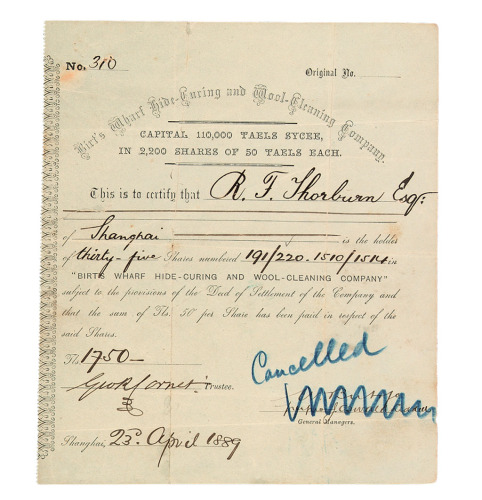 No. 310
Original No.
Birt's Wharf Hide-Curing and Wool-Cleaning Company.
CAPITAL 110,000 TAELS SYCEE,
IN 2,200 SHARES OF 50 TAELS EACH.
This is to certify that R. F. Thorburn Esq.
of Shanghai is the holder
of thirty-five Shares numbered 191/220. 1510/1514 in
"BIRT'S WHARF HIDE-CURING AND WOOL-CLEANING COMPANY"
subject to the provisions of the Deed of Settlement of the Company and
that the sum of Tls. 50 per Share has been paid in respect of the
said Shares.
Tls 1750—
Cancelled
Trustee.
General Managers.
Shanghai, 23d. April 1889